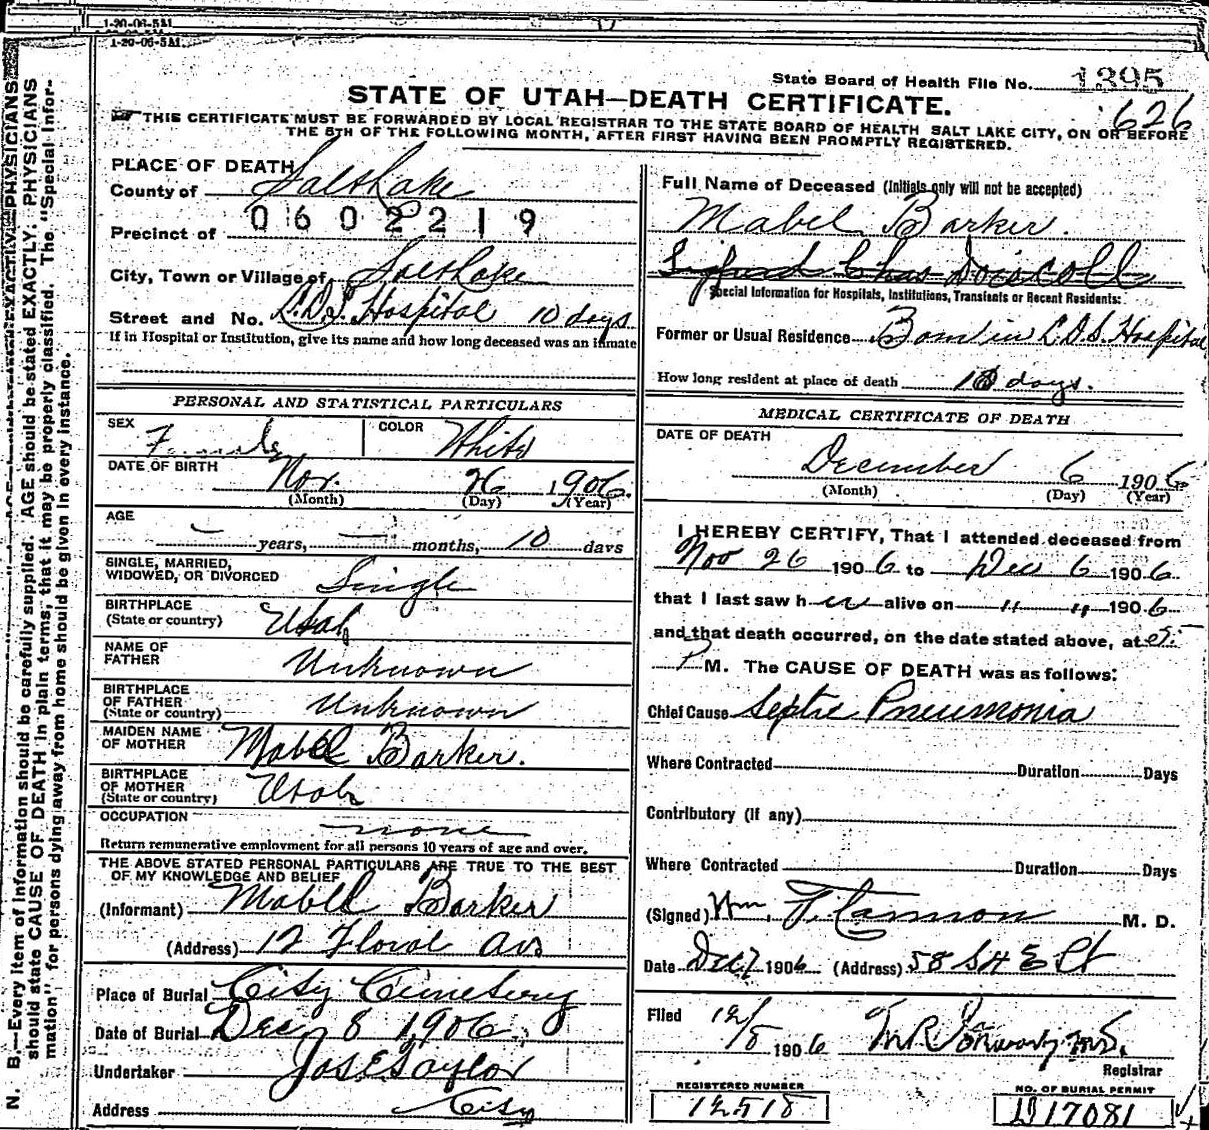 1-20-06-5M.
1-20-06-5M.
State Board of Health File No. 1395
626
STATE OF UTAH—DEATH CERTIFICATE.
THIS CERTIFICATE MUST BE FORWARDED BY LOCAL REGISTRAR TO THE STATE BOARD OF HEALTH SALT LAKE CITY, ON OR BEFORE
THE 5TH OF THE FOLLOWING MONTH, AFTER FIRST HAVING BEEN PROMPTLY REGISTERED.
N. B.—Every item of information should be carefully supplied. AGE should be stated EXACTLY. PHYSICIANS
should state CAUSE OF DEATH in plain terms, that it may be properly classified. The "Special Infor-
mation" for persons dying away from home should be given in every instance.
PLACE OF DEATH
County of Salt Lake
0602219
Precinct of
City, Town or Village of Salt Lake
Street and No. L.D.S. Hospital 10 days
If in Hospital or Institution, give its name and how long deceased was an inmate
PERSONAL AND STATISTICAL PARTICULARS
SEX Female COLOR White
DATE OF BIRTH Nov. 26 1906
(Month) (Day) (Year)
AGE
— years, — months, 10 days
SINGLE, MARRIED,
WIDOWED, OR DIVORCED Single
BIRTHPLACE
(State or country) Utah
NAME OF
FATHER Unknown
BIRTHPLACE
OF FATHER
(State or country) Unknown
MAIDEN NAME
OF MOTHER Mabel Barker.
BIRTHPLACE
OF MOTHER
(State or country) Utah
OCCUPATION none
Return remunerative employment for all persons 10 years of age and over.
THE ABOVE STATED PERSONAL PARTICULARS ARE TRUE TO THE BEST
OF MY KNOWLEDGE AND BELIEF
(Informant) Mabell Barker
(Address) 12 Floral Av
Place of Burial City Cemetery
Date of Burial Dec 8 1906
Undertaker Jos E Taylor
Address City
Full Name of Deceased (Initials only will not be accepted)
Mabel Barker.
Chas Driscoll
Special Information for Hospitals, Institutions, Transients or Recent Residents:
Former or Usual Residence Born in L.D.S. Hospital
How long resident at place of death 10 days.
MEDICAL CERTIFICATE OF DEATH
DATE OF DEATH
December 6 1906
(Month) (Day) (Year)
I HEREBY CERTIFY, That I attended deceased from
Nov 26 1906 to Dec 6 1906
that I last saw her alive on " " 1906
and that death occurred, on the date stated above, at
P M. The CAUSE OF DEATH was as follows:
Chief Cause Septic Pneumonia
Where Contracted Duration Days
Contributory (if any)
Where Contracted Duration Days
(Signed) Wm. T. Cannon M. D.
Date Dec 7 1906 (Address) 58 So
Filed 12/8 1906
Registrar
REGISTERED NUMBER
12518
NO. OF BURIAL PERMIT
17081